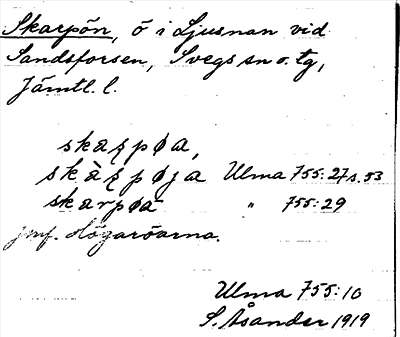 Skarpön, ö i Ljusnan vid
Sandsforsen, Svegs sn o. tg,
Jämtl. l.
skaʀpøa,
skàʀpøja Ulma 755:27 s. 53
skarpøa " 755:29
jmf. Högaröarna.
Ulma 755:10
S. Åsander 1919